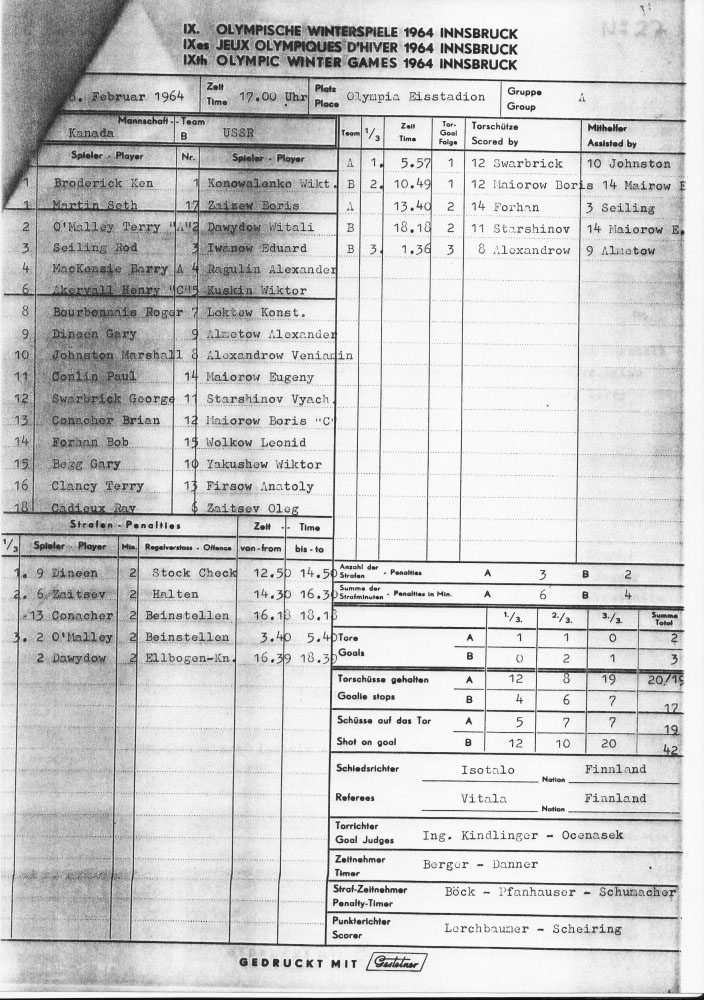 IX. OLYMPISCHE WINTERSPIELE 1964 INNSBRUCK
IXes JEUX OLYMPIQUES D'HIVER 1964 INNSBRUCK
IXth OLYMPIC WINTER GAMES 1964 INNSBRUCK
. Februar 1964 Zeit Time 17.00 Uhr Platz Place Olympia Eisstadion Gruppe Group A
Mannschaft - Team
Kanada B USSR
Spieler - Player Nr. Spieler - Player
1 Broderick Ken 1 Konowalenko Wikt.
1 Martin Seth 17 Zaizew Boris
2 O'Malley Terry "A" 2 Dawydow Witali
3 Seiling Rod 3 Iwanow Eduard
4 MacKenzie Barry A 4 Ragulin Alexander
6 Akervall Henry "C" 5 Kuskin Wiktor
8 Bourbonnais Roger 7 Loktew Konst.
9 Dineen Gary 9 Almetow Alexander
10 Johnston Marshall 8 Alexandrow Veniamin
11 Conlin Paul 14 Maiorow Eugeny
12 Swarbrick George 11 Starshinov Vyach.
13 Conacher Brian 12 Maiorow Boris "C"
14 Forhan Bob 15 Wolkow Leonid
15 Begg Gary 10 Yakushew Wiktor
16 Clancy Terry 13 Firsow Anatoly
18 Cadieux Ray 6 Zaitsev Oleg
Team 1/3 Zeit Time Tor- Goal Folge Torschütze Scored by Mithelfer Assisted by
A 1. 5.57 1 12 Swarbrick 10 Johnston
B 2. 10.49 1 12 Maiorow Boris 14 Mairow E
A 13.40 2 14 Forhan 3 Seiling
B 18.18 2 11 Starshinov 14 Maiorow E.
B 3. 1.36 3 8 Alexandrow 9 Almetow
Strafen - Penalties Zeit -- Time
1/3 Spieler - Player Min. Regelverstoss - Offence von-from bis-to
1. 9 Dineen 2 Stock Check 12.50 14.50
2. 6 Zaitsev 2 Halten 14.30 16.30
-13 Conacher 2 Beinstellen 16.18 18.18
3. 2 O'Malley 2 Beinstellen 3.40 5.40
2 Dawydow 2 Ellbogen-Kn. 16.39 18.39
Anzahl der Strafen - Penalties A 3 B 2
Summe der Strafminuten - Penalties in Min. A 6 B 4
1./3. 2./3. 3./3. Summe Total
Tore A 1 1 0 2
Goals B 0 2 1 3
Torschüsse gehalten A 12 8 19 20/19
Goalie stops B 4 6 7 17
Schüsse auf das Tor A 5 7 7 19
Shot on goal B 12 10 20 42
Schiedsrichter Isotalo Nation Finnland
Referees Vitala Nation Finnland
Torrichter
Goal Judges Ing. Kindlinger - Ocenasek
Zeitnehmer
Timer Berger - Danner
Straf-Zeitnehmer
Penalty-Timer Böck - Pfanhauser - Schumacher
Punkterichter
Scorer Lerchbaumer - Scheiring
GEDRUCKT MIT Gestetner